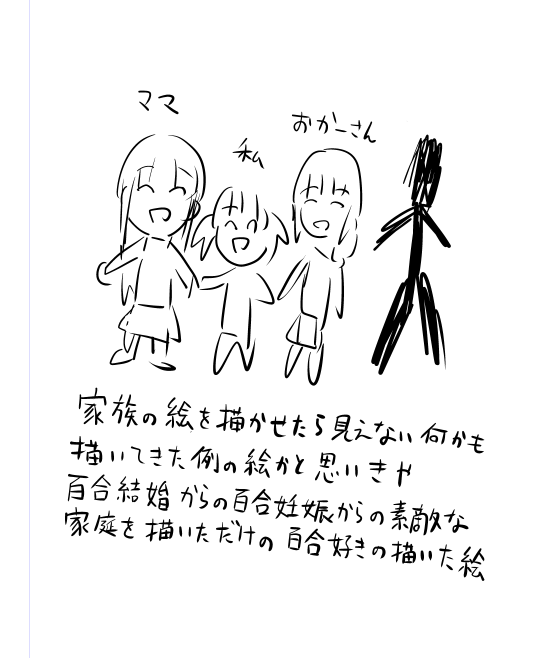 ママ
おかーさん
私
家族の絵を描かせたら見えない何かも
描いてきた例の絵かと思いきや
百合結婚からの百合妊娠からの素敵な
家庭を描いただけの百合好きの描いた絵